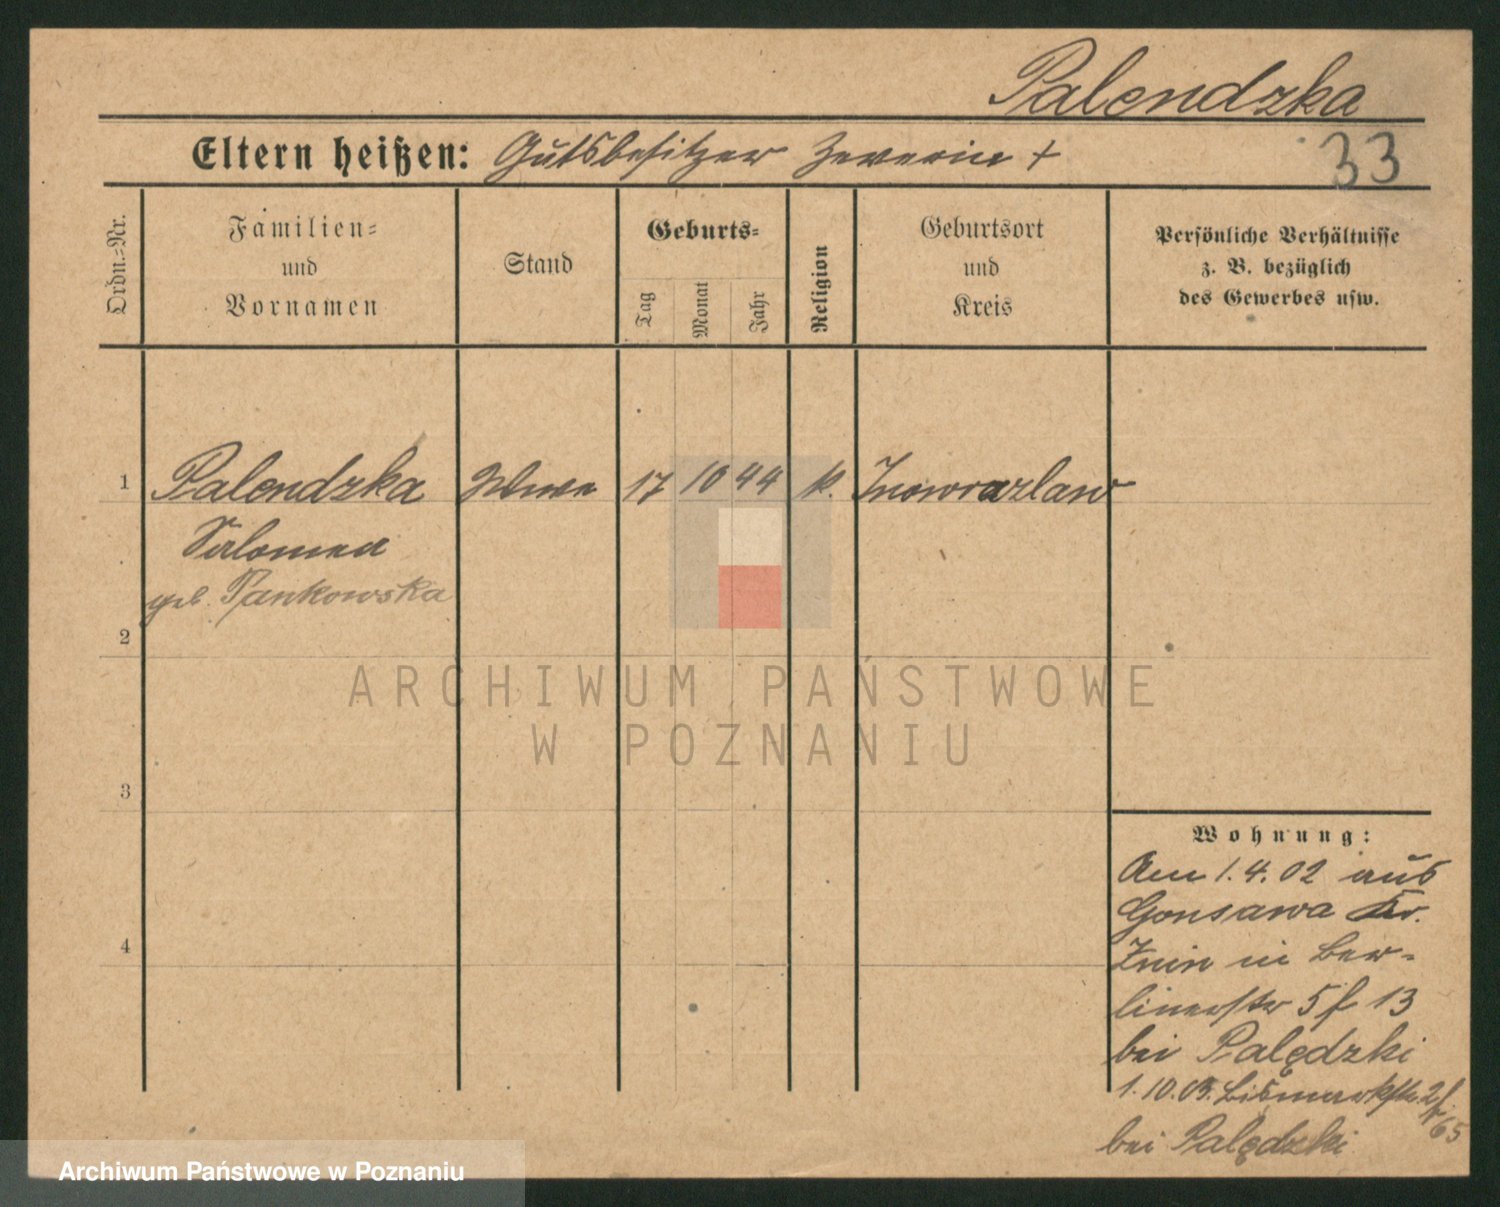 Palendzka
Eltern heißen: Gutsbesitzer Severin +
33
Ordn.-Nr.
Familien-
und
Vornamen
Stand
Geburts-
Tag
Monat
Jahr
Religion
Geburtsort
und
Kreis
Persönliche Verhältnisse
z. B. bezüglich
des Gewerbes usw.
1 Palendzka Wwe 17 10 44 k. Inowrazlaw
Salomea
geb. Pankowska
2
ARCHIWUM PAŃSTWOWE
W POZNANIU
3
Wohnung:
Am 1.4.02 aus
Gonsawa Kr.
Znin in Ber-
linerstr 5 f 13
4
bei Palędzki
1.10.03. Bismarkstr. 2 f
65
bei Palędzki
Archiwum Państwowe w Poznaniu